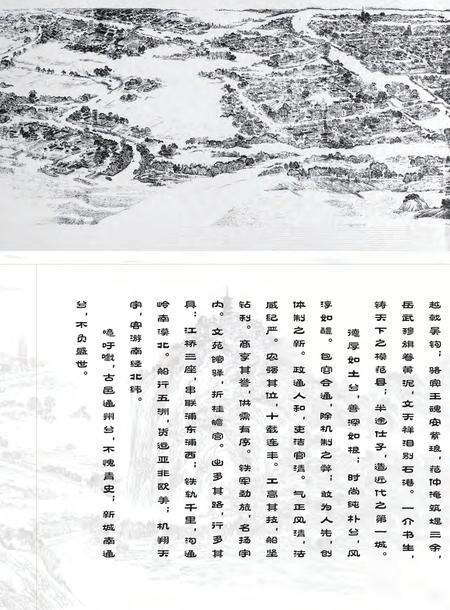 越就吴钩；骆宾王魂安紫琅，范仲淹筑堤三余，
岳武穆旗卷黄泥，文天祥泪别石港。一介书生，
铸天下之模范县；半途仕子，造近代之第一城。
德厚如土台，善深如根；时尚纯朴台，风
淳如醴。包容会通，除机制之弊；敢为人先，创
体制之新。政通人和，吏洁官清。气正风清，法
威纪严。农强其位，十载连丰。工高其技，船坚
钻利。商享其誉，供需有序。铁军劲旅，名扬宇
内。文苑馆驿，折桂蟾宫。幽多其路，行多其
具；江桥三座，串联浦东浦西；铁轨千里，沟通
岭南漠北。船行五洲，货运亚非欧美；机翔天
宇，客游南经北纬。
噫吁嚱，古邑通州台，不愧青史；新城南通
台，不负盛世。